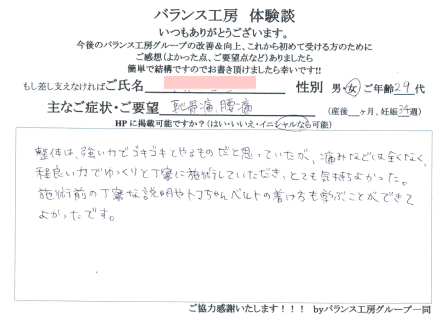 バランス工房 体験談
いつもありがとうございます。
今後のバランス工房グループの改善&向上、これから初めて受ける方のために
ご感想(よかった点、ご要望点など)ありましたら
簡単で結構ですのでお書き頂けましたら幸いです!!
もし差し支えなければご氏名 性別 男・女 ご年齢29代
主なご症状・ご要望 恥骨痛、腰痛 (産後 ヶ月、妊娠34週)
HPに掲載可能ですか?(はい・いいえ・イニシャルなら可能)
整体は、強い力でゴキゴキとやるものだと思っていたが、痛みなどは全くなく、
程良い力でゆっくりと丁寧に施術していただき、とても気持ちよかった。
施術前の丁寧な説明やトコちゃんベルトの着け方も学ぶことができて
よかったです。
ご協力感謝いたします!!! byバランス工房グループ一同